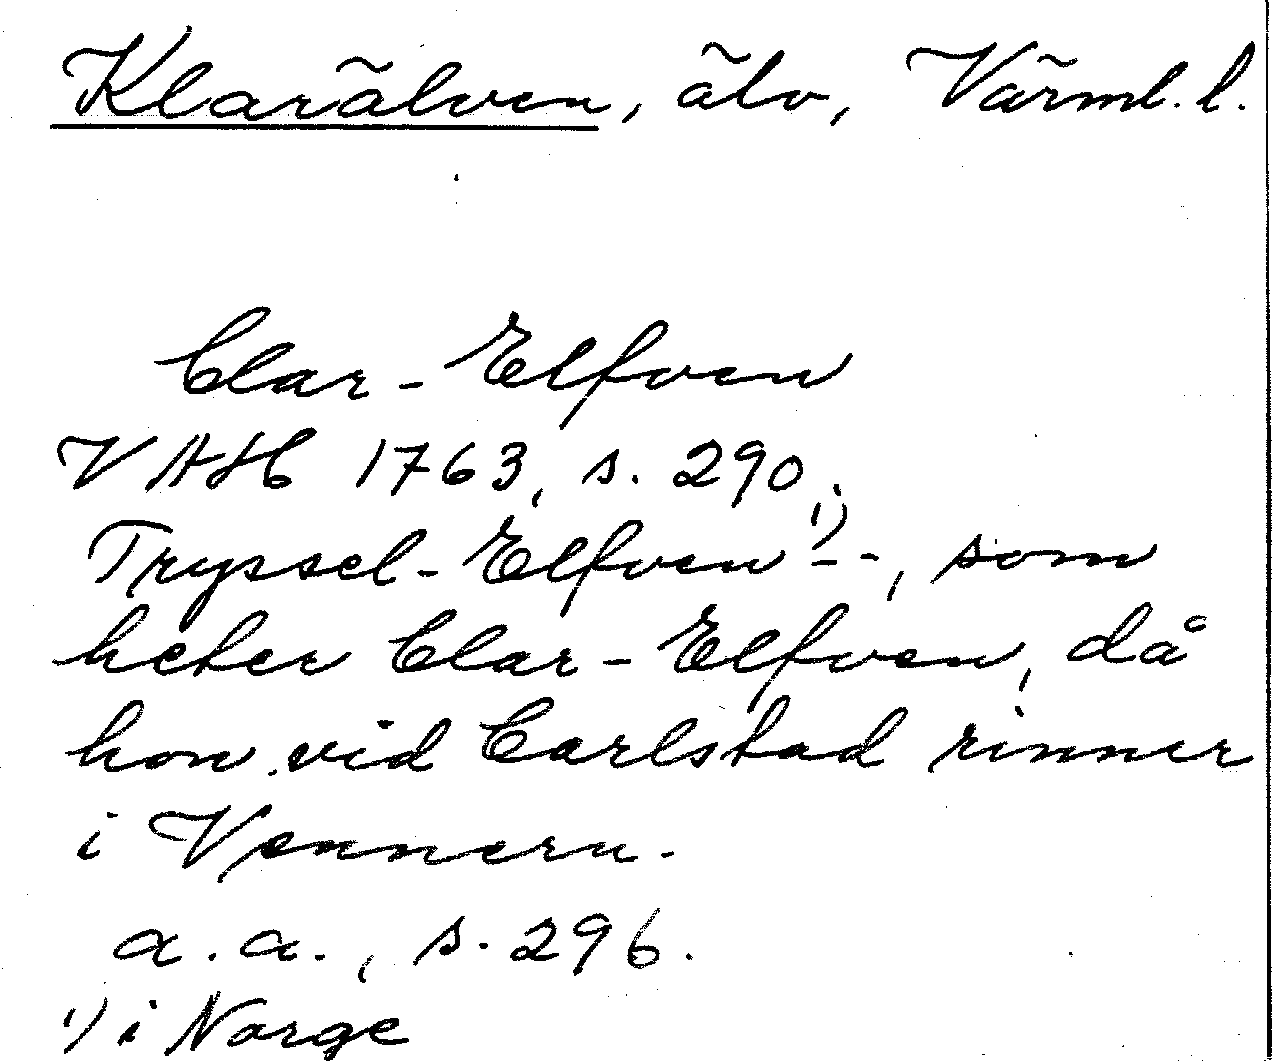 Klarälven, älv, Värml. l.
Clar-Elfven
VAH 1763, s. 290.
Tryssel-Elfven ¹) - -, som
heter Clar-Elfven, då
hon vid Carlstad rinner
i Vennern.
a.a., s. 296.
¹) i Norge